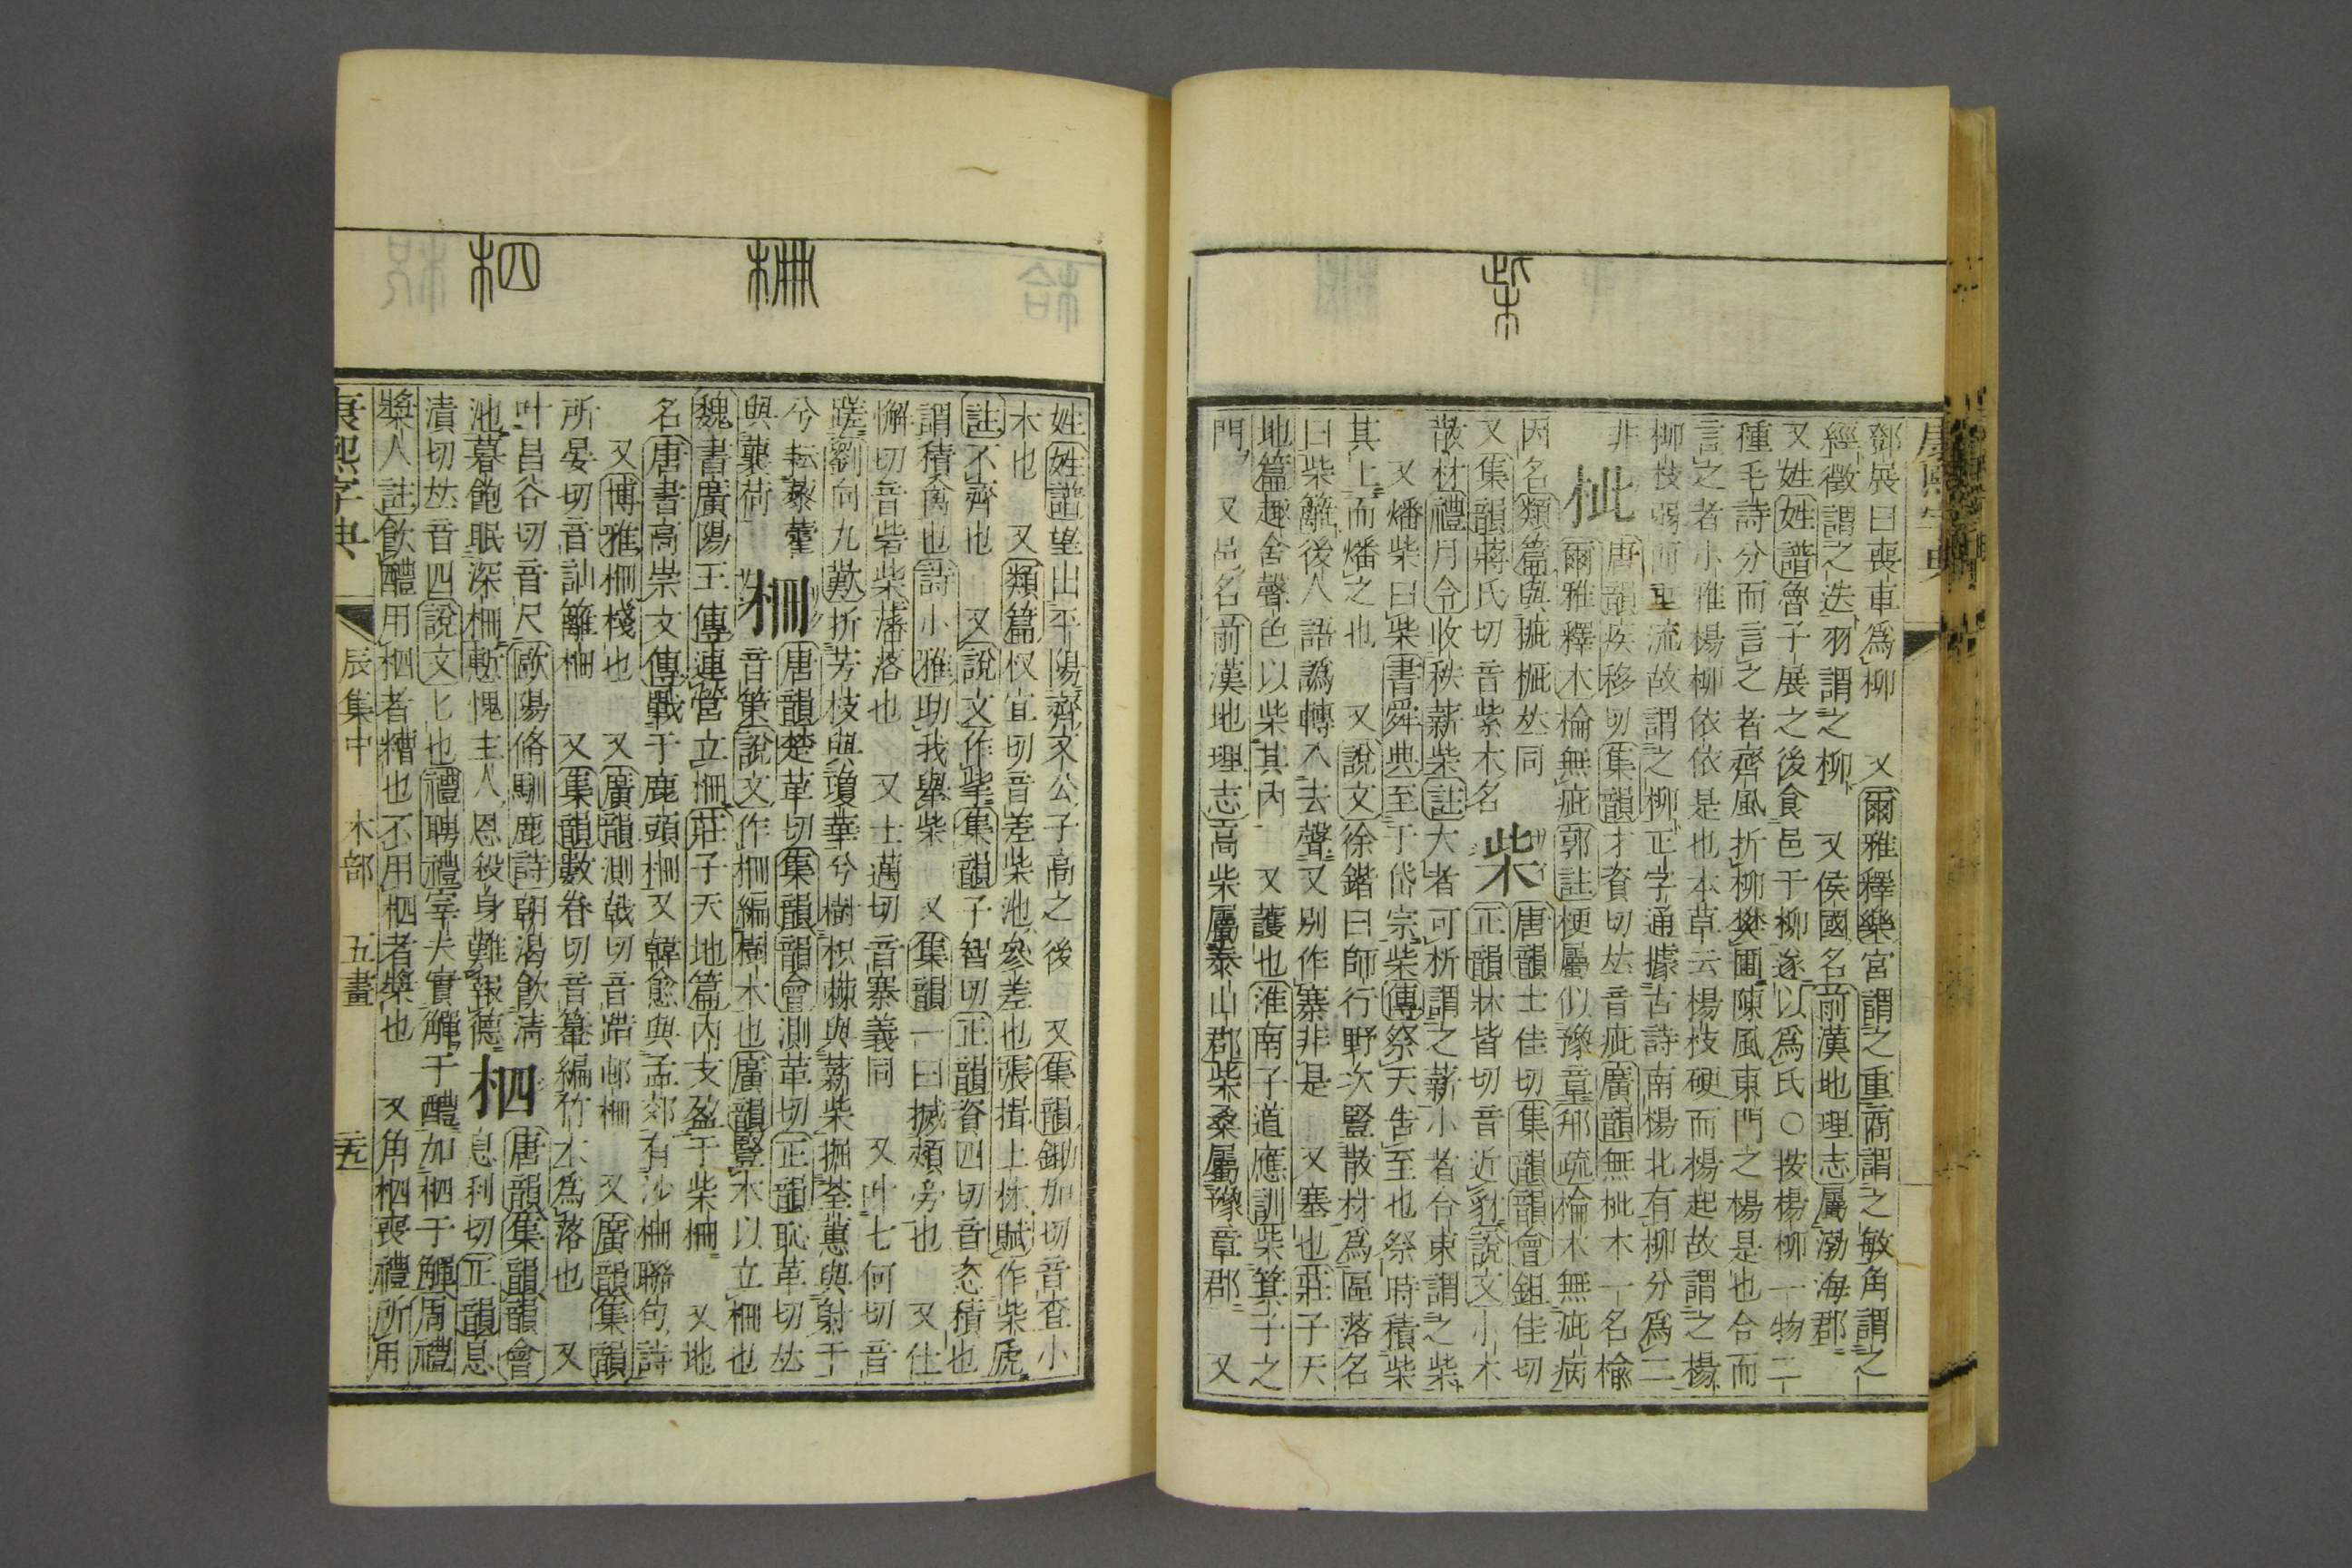 柴
鄧展曰喪車爲柳　又爾雅釋樂宮謂之重商謂之敏角謂之
經徵謂之迭羽謂之柳　又侯國名前漢地理志屬渤海郡
又姓姓譜魯子展之後食邑于柳遂以爲氏○按楊柳一物二
種毛詩分而言之者齊風折柳樊圃陳風東門之楊是也合而
言之者小雅楊柳依依是也本草云楊枝硬而揚起故謂之楊
柳枝弱而垂流故謂之柳正字通據古詩南楊北有柳分爲二
非　枇唐韻疾移切集韻才資切𠀤音疵廣韻無枇木一名楡
爾雅釋木棆無疵郭註梗屬似豫章邢疏棆木無疵病
因名類篇與㧗㭰𠀤同　柴唐韻士佳切集韻韻會鉏佳切
又集韻蔣氏切音紫木名　正韻牀皆切音近豺說文小木
散材禮月令收秩薪柴註大者可析謂之薪小者合束謂之柴
又燔柴曰柴書舜典至于岱宗柴傳祭天告至也祭時積柴
其上而燔之也　又說文徐鍇曰師行野次豎散材爲區落名
曰柴籬後人語譌轉入去聲又別作寨非是　又塞也莊子天
地篇趣舍聲色以柴其內　又護也淮南子道應訓柴箕子之
門　又邑名前漢地理志高柴屬泰山郡柴桑屬豫章郡　又
柵
柶
姓姓譜望出平陽齊文公子高之後　又集韻鋤加切音查小
木也　又類篇杈宜切音差柴池參差也張揖上林賦作柴虒
註不齊也　又說文作㧘集韻子智切正韻資四切音恣積也
謂積禽也詩小雅助我舉柴　又集韻一曰搣頰旁也　又仕
懈切音砦柴藩落也　又士邁切音寨義同　又叶七何切音
蹉劉向九歎折芳枝與瓊華兮樹枳棘與薪柴掘荃蕙與射干
兮耘藜藿　柵唐韻楚革切集韻韻會測革切正韻恥革切𠀤
與蘘荷　音策說文作柵編樹木也廣韻豎木以立柵也
魏書廣陽王傳連營立柵莊子天地篇內支盈于柴柵　又地
名唐書高崇文傳戰于鹿頭柵又韓愈與孟郊有沙柵聯句詩
又博雅柵棧也　又廣韻測戟切音踖邨柵　又廣韻集韻
所晏切音訕籬柵　又集韻數眷切音䉵編竹木爲落也　又
叶昌谷切音尺歐陽脩馴鹿詩朝渴飲淸
池暮飽眠深柵慙愧主人恩殺身難報德　柶唐韻集韻韻會息利切正韻息
漬切𠀤音四說文匕也禮聘禮宰夫實觶于醴加柶于觶周禮
漿人註飮醴用柶者糟也不用柶者漿也　又角柶喪禮所用
康熙字典　辰集中　木部　五畫